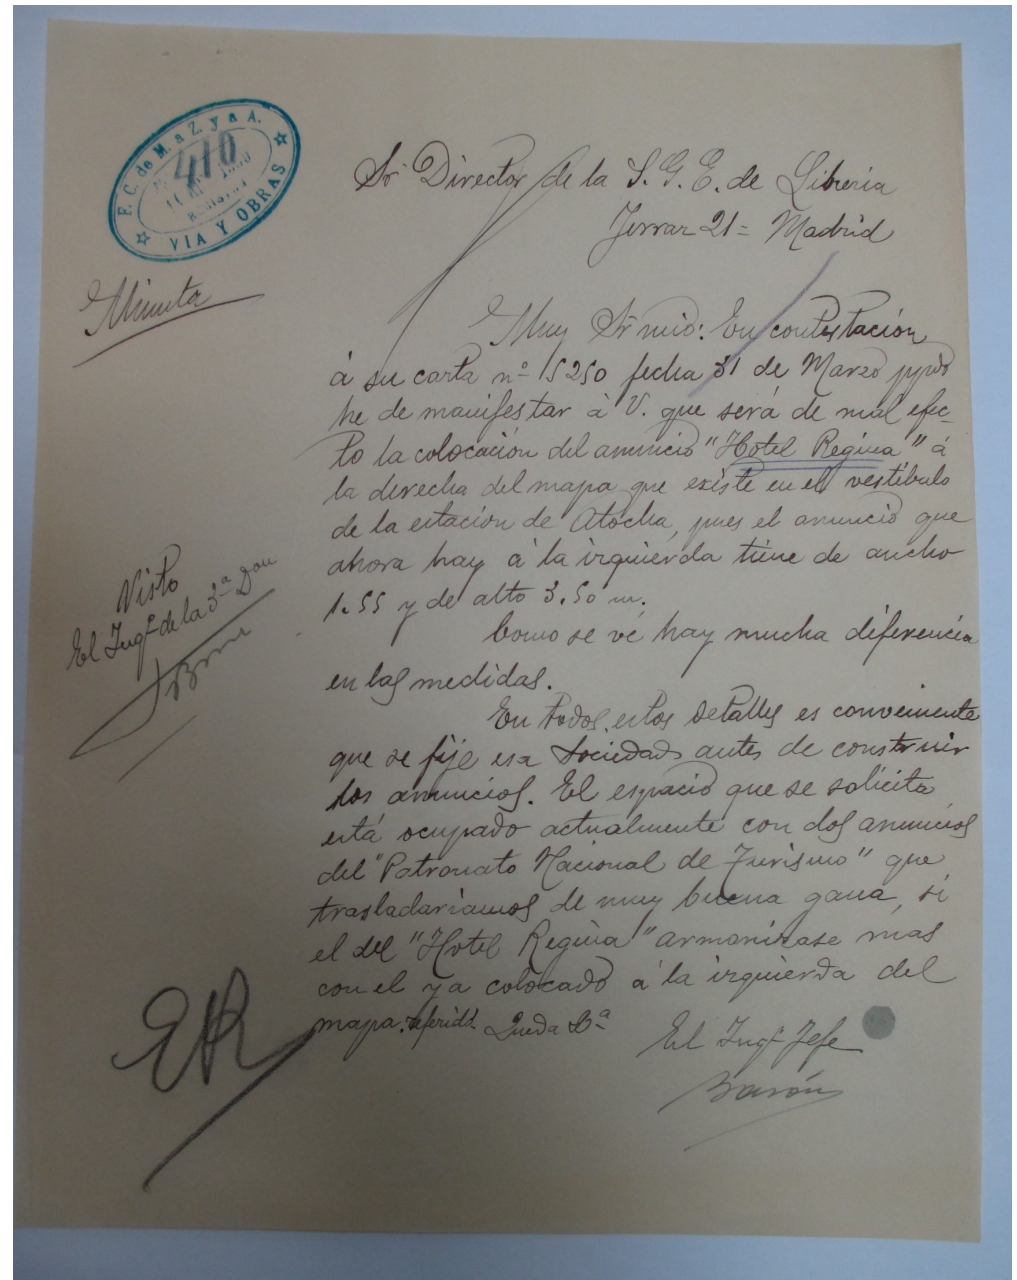 F. C. de M. a Z. y a A.
410
VIA Y OBRAS
Minuta
Sr Director de la S. G. E. de Libreria
Ferraz 21 = Madrid
Muy Sr mio: En contestación
á su carta nº 15250 fecha 31 de Marzo ppdo
he de manifestar á V. que será de mal efec-
to la colocación del anuncio "Hotel Regina" á
la derecha del mapa que existe en el vestíbulo
de la estación de Atocha, pues el anuncio que
ahora hay á la izquierda tiene de ancho
1.55 y de alto 3.50 m.
Como se vé hay mucha diferencia
en las medidas.
En todos estos detalles es conveniente
que se fije esa Sociedad antes de construir
los anuncios. El espacio que se solicita
está ocupado actualmente con dos anuncios
del "Patronato Nacional de Turismo" que
trasladariamos de muy buena gana, si
el del "Hotel Regina" armonizase más
con el ya colocado á la izquierda del
mapa referido. Queda Dª
El Ingº Jefe
Barón
Visto
El Ingº de la 3ª Don
ER